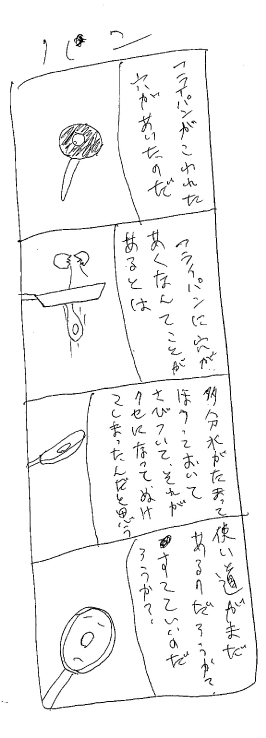 パン
フライパンがこわれた
穴があいたのだ
フライパンに穴が
あくなんてことが
あるとは
多分水がたまって
ほうっておいて
さびついて、それが
クセになってぬけ
てしまったんだと思う
使い道がまだ
あるのだろうか?
すてていいのだ
ろうか?